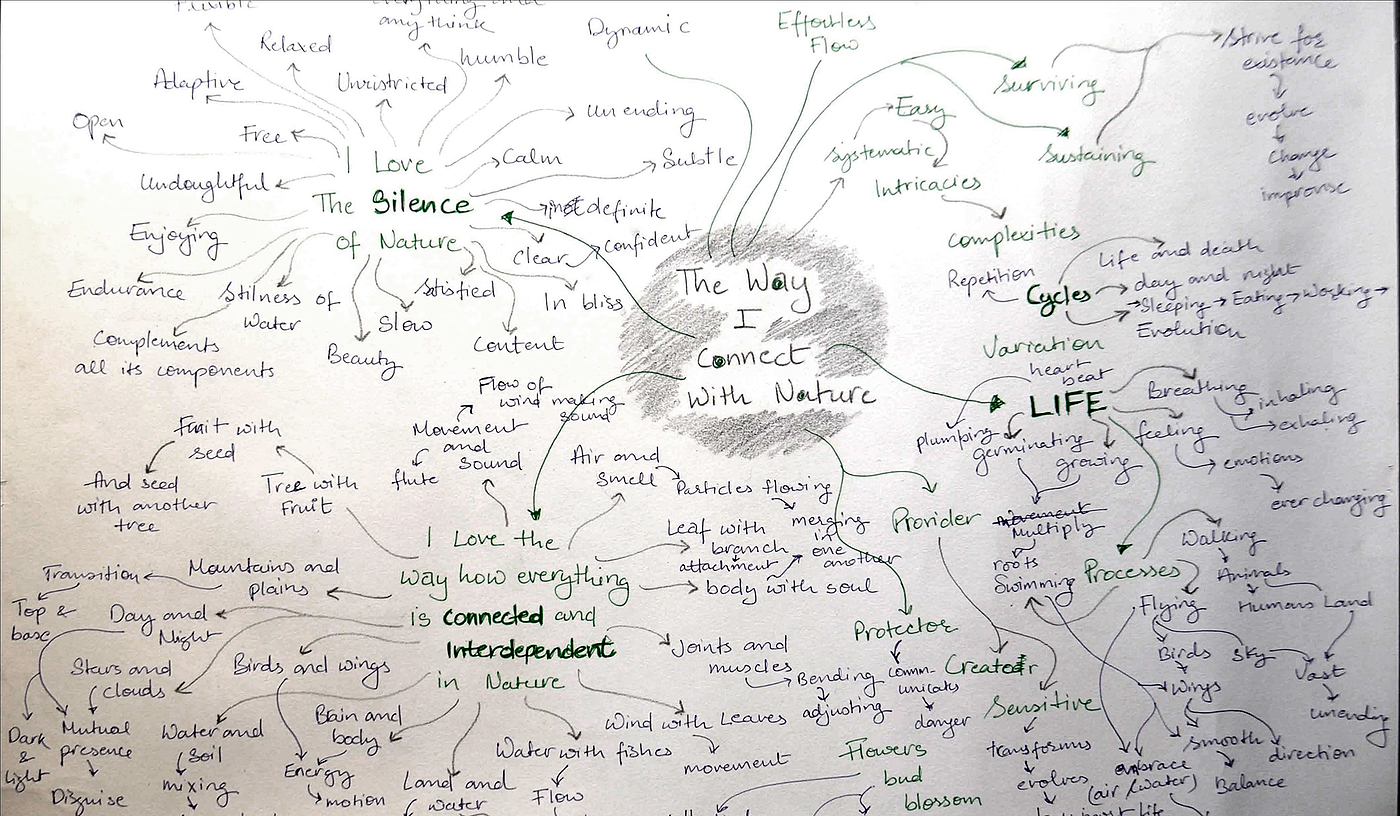 Flexible
any think
Relaxed
humble
Adaptive
Unristricted
Open
Free
Undoughtful
Enjoying
Endurance
Stilness of
Water
Complements
all its components
Beauty
Slow
Satisfied
Content
In bliss
Clear
confident
definite
Subtle
Calm
Un ending
I Love
The Silence
of Nature
Dynamic
Effortless
Flow
The Way
I
Connect
With Nature
Systematic
Easy
Intricacies
Complexities
Surviving
Sustaining
Strive for
existance
evolve
Change
improvise
Cycles
Repetition
Life and death
day and night
Sleeping → Eating → Working →
Evolution
Variation
heart
beat
LIFE
Breathing
inhaling
exhaling
feeling
emotions
ever changing
plumping
germinating
growing
movement
Multiply
roots
Swimming
Processes
Walking
Animals
Humans Land
Flying
Birds
Sky
Vast
unending
Wings
Smooth
direction
Balance
embrace
(air/water)
Provider
Protector
Comm-
unicats
danger
Creator
Sensitive
transforms
evolves
Flowers
bud
blossom
I Love the
way how everything
is connected and
Interdependent
in Nature
Flow of
wind making
sound
Movement
and
sound
flute
Air and
Smell
Particles flowing
merging
in
one
another
Leaf with
branch
attachment
body with soul
Joints and
muscles
Bending
adjusting
Wind with Leaves
movement
Water with fishes
Flow
Land and
water
Brain and
body
Energy
motion
Birds and wings
Water and
Soil
mixing
Stars and
clouds
Day and
Night
Mutual
presence
Disguise
Dark
&
light
Mountains and
plains
Transition
Top &
base
Tree with
Fruit
Fruit with
seed
And seed
with another
tree